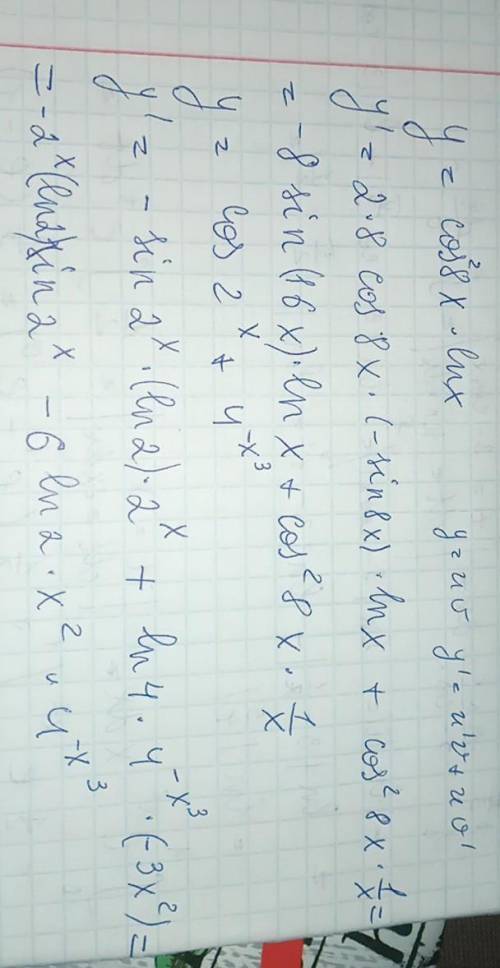 y = cos²8x · lnx   y = uv   y' = u'v + uv'
y' = 2·8 cos 8x · (-sin 8x) · lnx + cos² 8x · 1/x =
= -8 sin(16x) · ln x + cos² 8x · 1/x
y = cos 2^x + 4^(-x³)
y' = - sin 2^x · (ln2) · 2^x + ln4 · 4^(-x³) · (-3x²) =
= -2^x (ln2) sin 2^x - 6 ln 2 · x² · 4^(-x³)